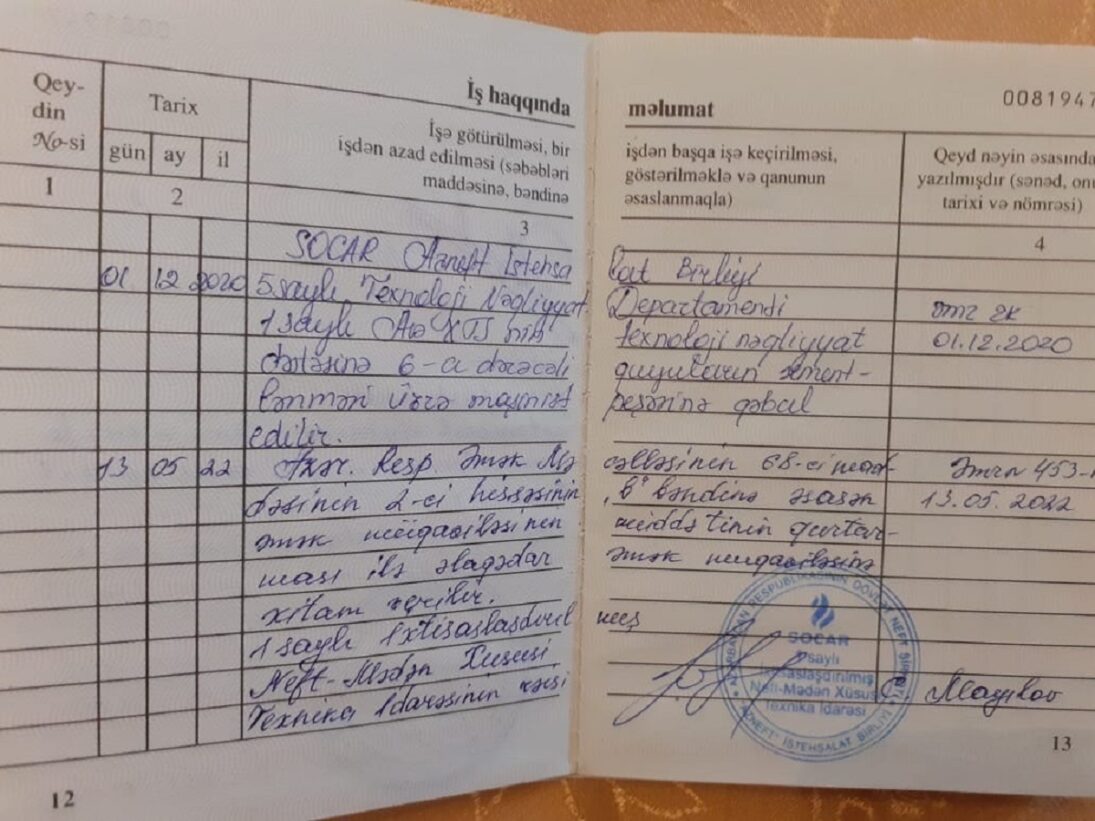 İş haqqında
məlumat
0081947
Qey-
din
No-si
Tarix
gün ay il
İşə götürülməsi, bir
işdən azad edilməsi (səbəbləri
maddəsinə, bəndinə
işdən başqa işə keçirilməsi,
göstərilməklə və qanunun
əsaslanmaqla)
Qeyd nəyin əsasında
yazılmışdır (sənəd, onu
tarixi və nömrəsi)
1 2 3 4
SOCAR Azneft İstehsa lat Birliyi
01 12 2020 5 saylı Texnoloji Nəqliyyat Departamendi
1 saylı texnoloji nəqliyyat 01.12.2020
6-cı dərəcəli quyuların sement-
lənməsi üzrə maşinist qəbul
edilir.
13 05 22 Azər. Resp. Əmək Mə cəlləsinin 68-ci mad- Əmrn 453-
dəsinin 2-ci hissəsinin "b" bəndinə əsasən 13.05.2022
əmək müqaviləsinin müddətinin qurtar-
ması ilə əlaqədar əmək müqaviləsinə
xitam verilir.
1 saylı İxtisaslaşdırıl mış
Neft-Mədən Xüsusi
Texnika İdarəsinin rəisi
AZƏRBAYCAN RESPUBLİKASININ DÖVLƏT NEFT ŞİRKƏTİ
SOCAR
saylı
İxtisaslaşdırılmış
Neft-Mədən Xüsusi
Texnika İdarəsi
"AZNEFT" İSTEHSALAT BİRLİYİ
12
13